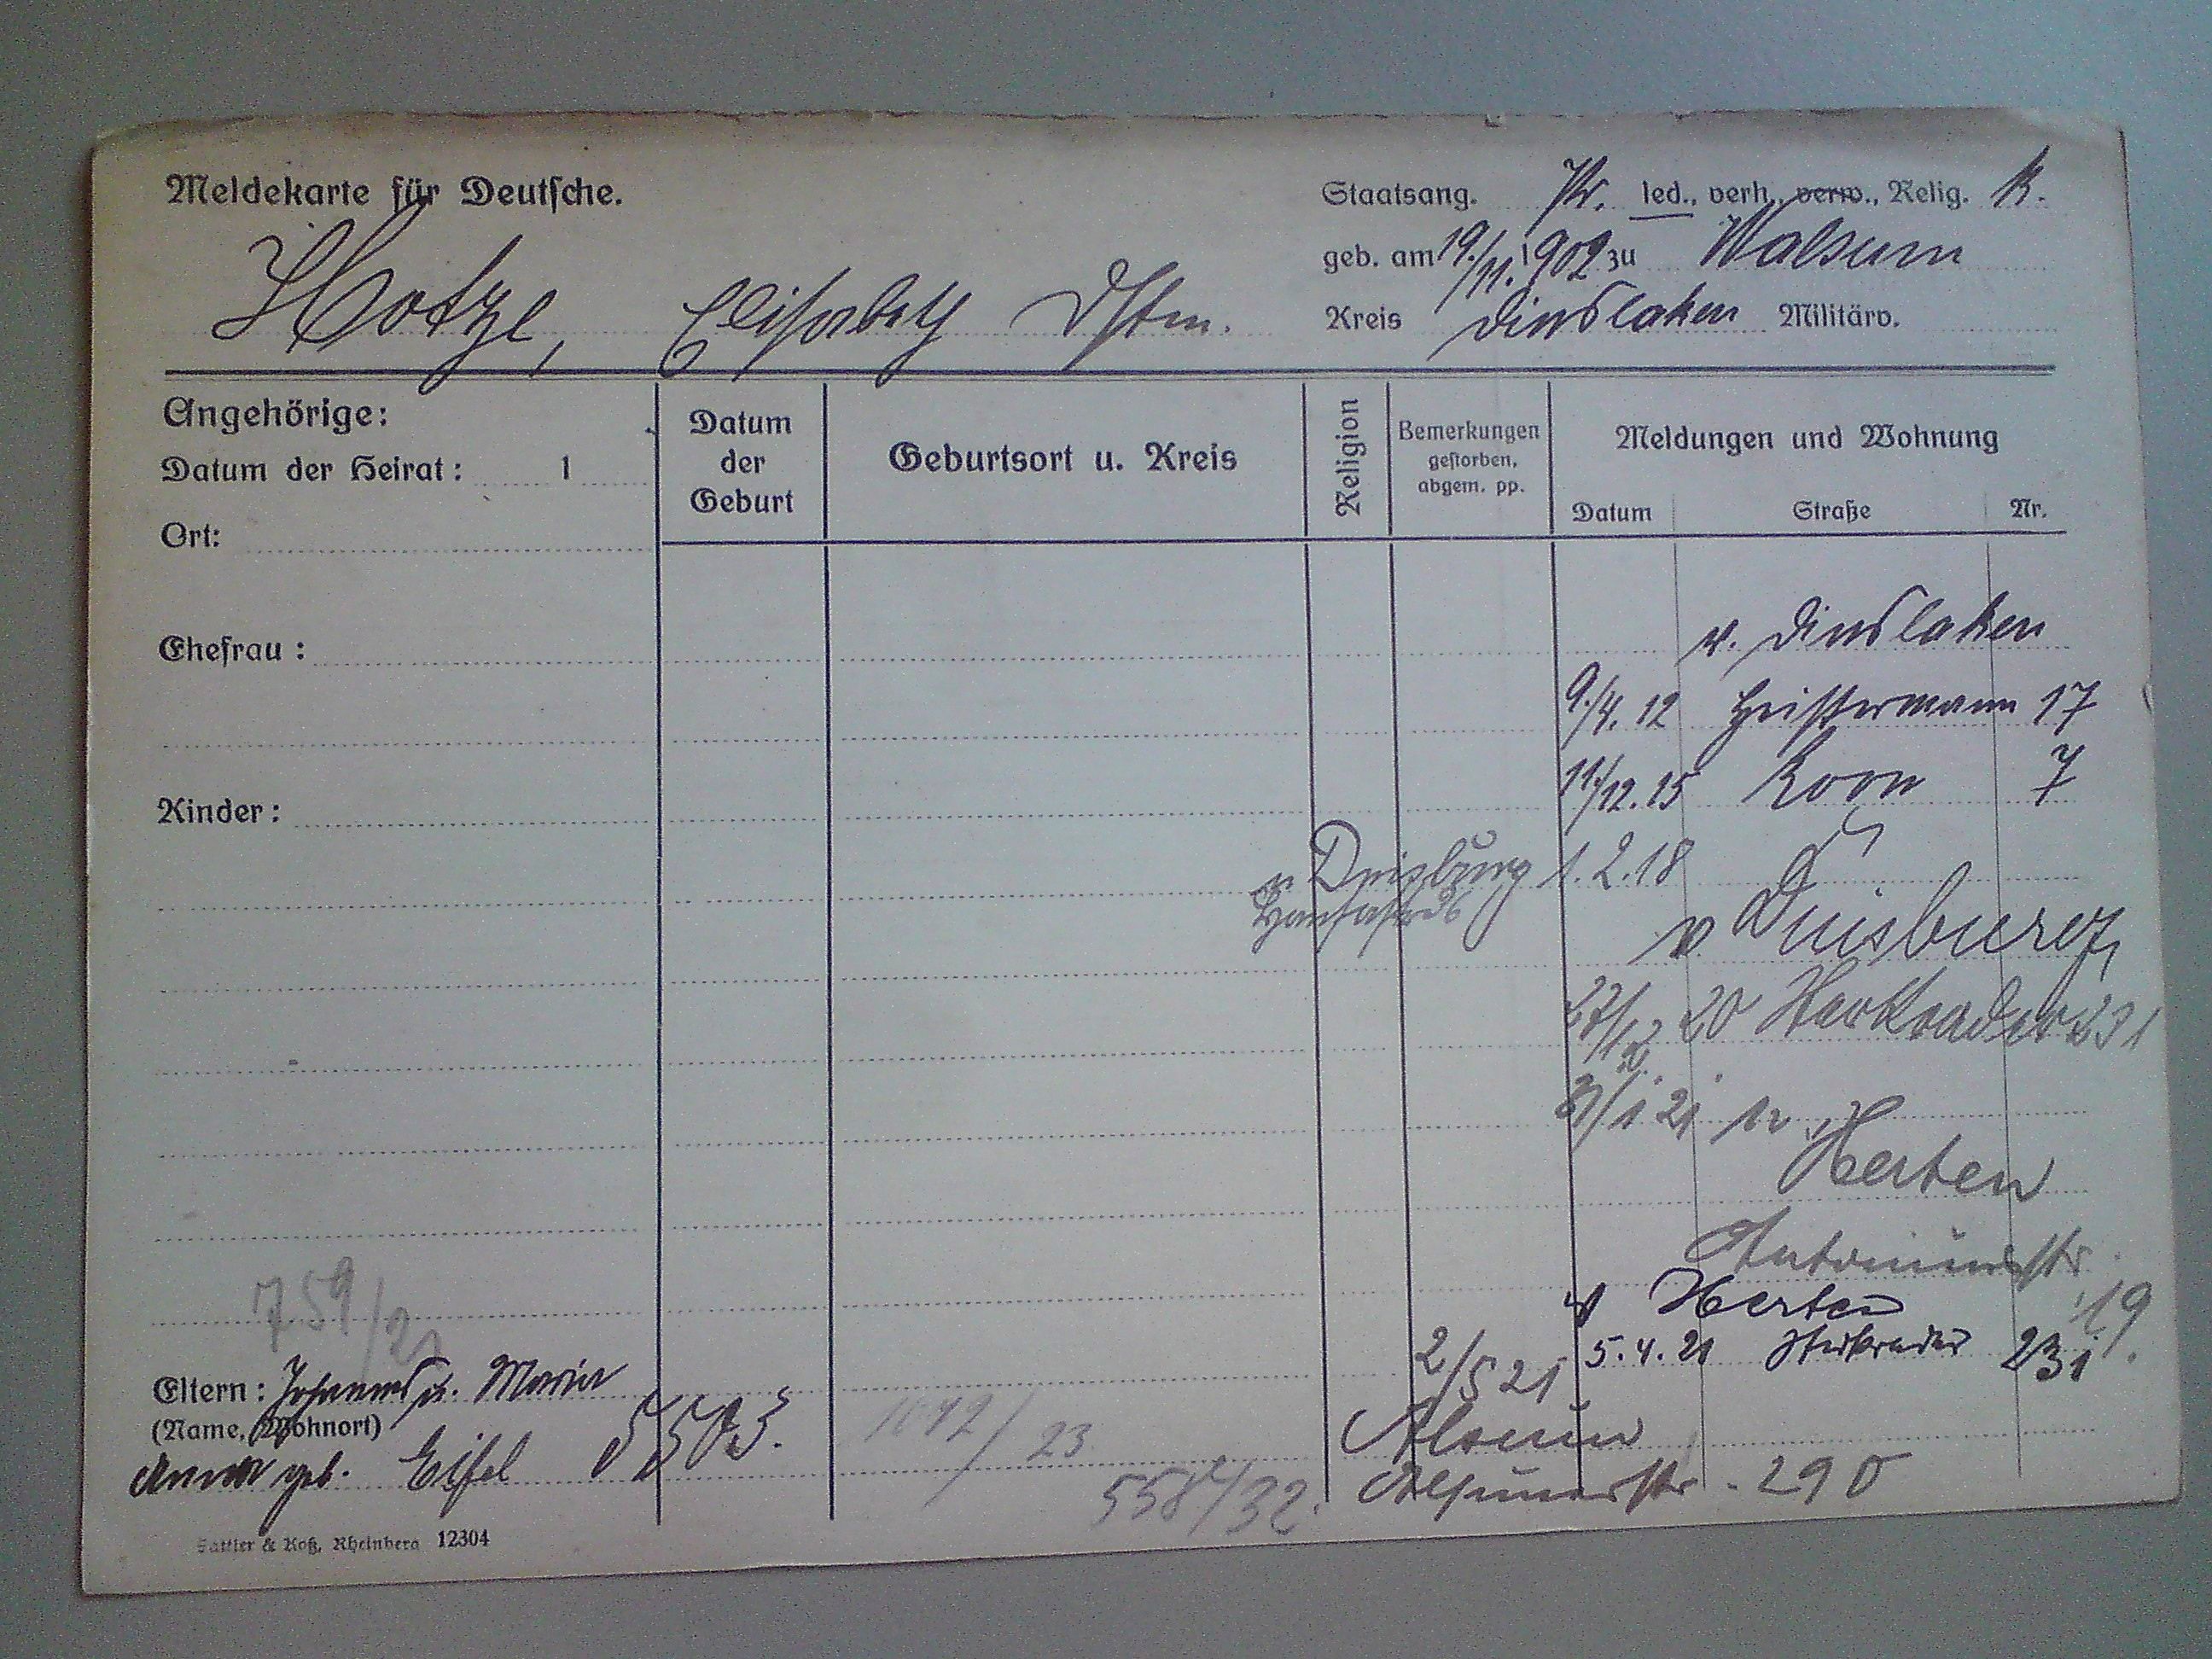 Meldekarte für Deutsche.
Staatsang. Pr. led., verh., verw., Relig. K.
geb. am 19./11. 1902 zu Walsum
Hotze, Elisabeth Dstm.
Kreis Dinslaken Militärv.
Angehörige:
Datum der Heirat: 1
Ort:
Datum der Geburt
Geburtsort u. Kreis
Religion
Bemerkungen gestorben, abgem. pp.
Meldungen und Wohnung
Datum Straße Nr.
v. Dinslaken
Ehefrau:
9./4. 12 Heistermann 17
11/12. 15 Roon 7
Kinder:
n Duisburg 1. 2. 18
v Duisburg
27/12 20 Hamborner 231
31/1 21 n. Herten
Antoniusstr. 19
v Herten
5. 4. 21 231
759/21
2/5 21
Eltern: Johannes u. Maria
(Name, Wohnort)
Anna geb. Eifel
1642/23
Alsum
558/32. Alsumerstr. 290
Sattler & Koß, Rheinberg 12304